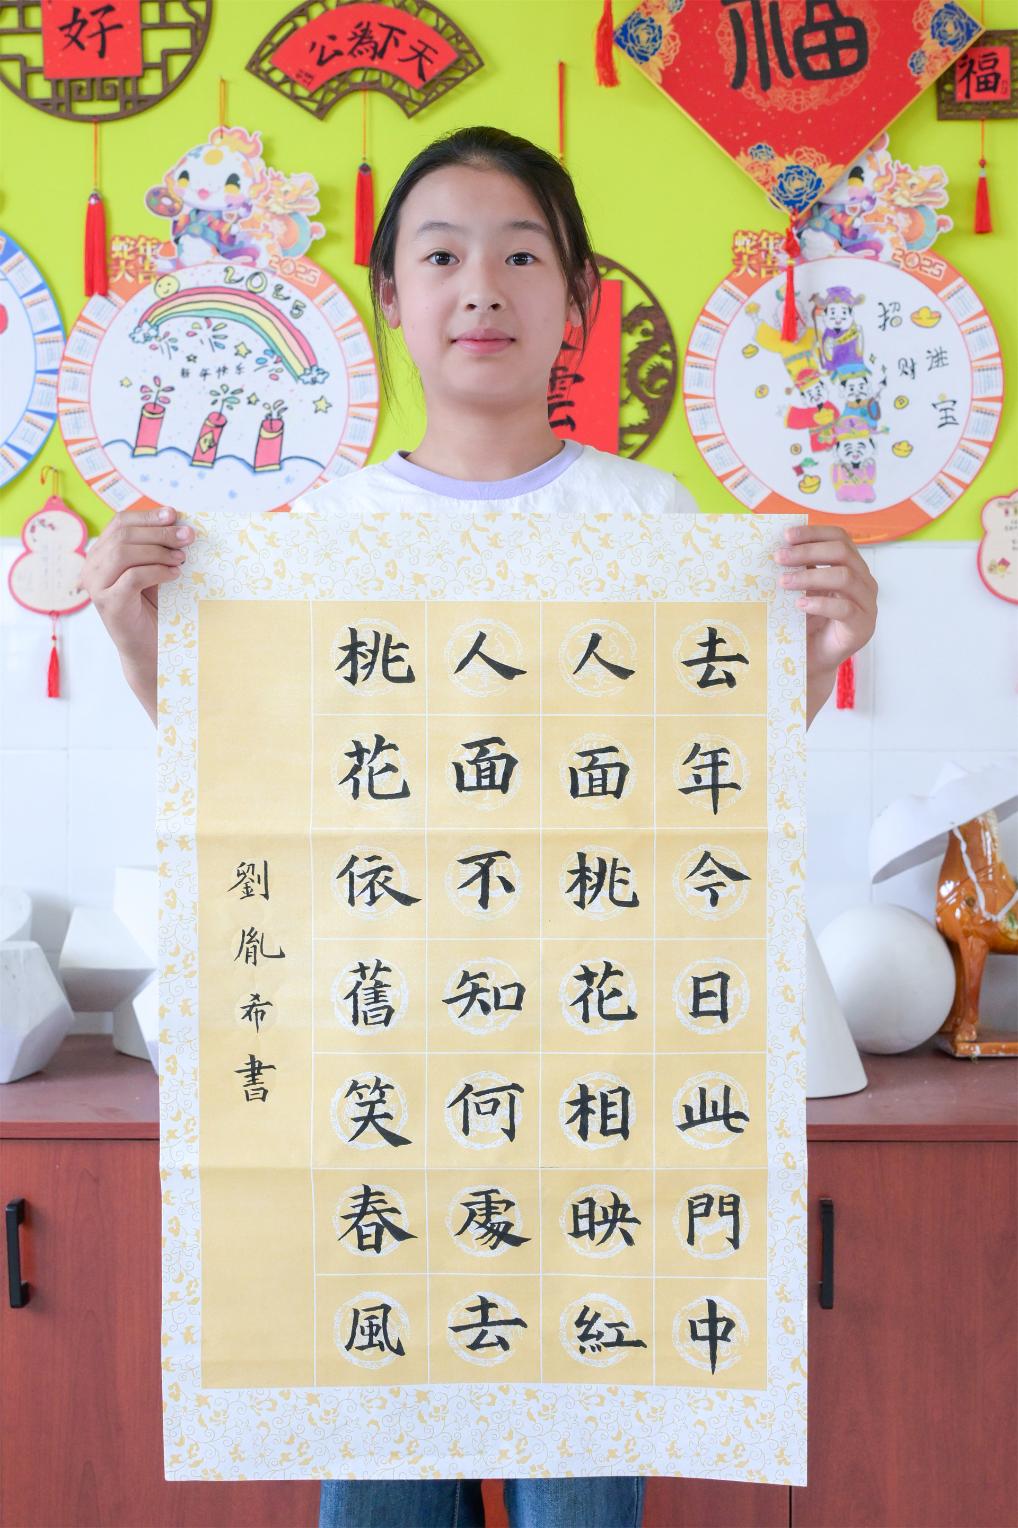 好
天下為公
福
福
蛇年大吉
2025
2025
新年快乐
雲
蛇年大吉
2025
招財进宝
去年今日此門中
人面桃花相映紅
人面不知何處去
桃花依舊笑春風
劉胤希書